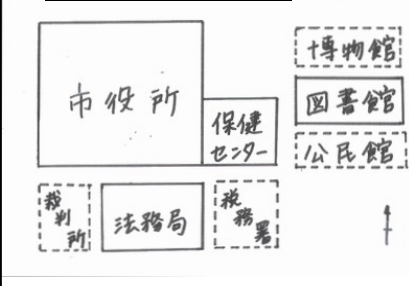 市役所
保健
センター
博物館
図書館
公民館
裁判所
法務局
税務署